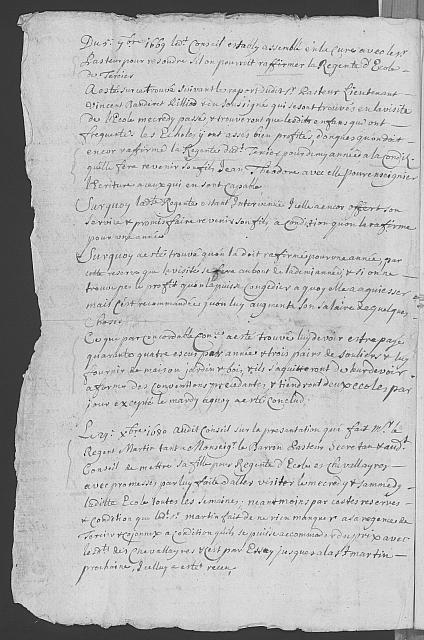 Du 5e 9bre 1669 led. Conseil estably assemblé en la Cure avec le sr
Pasteur pour resoudre si lon pourrit raffirmer la Regente d'Ecole
de
A esté sur ce trouvé suivant le raport dudit Sr Pasteur Lieutenant
Vincent soussigné qui se sont trouvés en la visite
de l'Ecole mecredy passé trouveront que lesdits enfens qui ont
frequenté les Escholes y ont asses bien profités, donques qu'on doit
encor raffirmé la Regente de pour demy année a la condit.
qu'elle fera revenir son fils Jean Theodore avec elle pour enseigner
l'Ecriture a ceux qui en sont capable
Surquoy lad. Regente estant Intervenue Icelle a encor offert son
service & promis faire revenir son fils, a Condition qu'on la rafferme
pour une année
Surquoy a esté trouvé qu'on la doit raffirmé pour une année par
cette reserve que la visite se fera au bout de la demi année & si on ne
trouve pas le profit qu'on la puisse Congedier a quoy elle a aquiesser
mais s'est recommandée qu'on luy augmente son salaire de quelque
Chose
Ce que par concordable Con. a esté trouvé luy devoir estre payé
quarante quatre escus par année & trois pairs de souliers & luy
fournir de maison jardin & bois, & ils s'aquiteront de leur devoir
a forme des Conventions precedante, & tiendront deux ecoles par
jour excepté le mardy a quoy a esté Conclud.
Le 9bre 1680 Audit Conseil sur la presentation qui fait Mr le
Regent Martin tant a Monseigr le Pasteur Secretan & aud.
Conseil de mettre sa fille pour Regente d'Ecole es Chevallayres
avec promesse par luy faite d'aller visiter le mecredy & sammedy
laditte Ecole toutes les semaines; neantmoins par cestes reserves
& Condition que led. Sr martin fait de ne rien manquer a sa regence de
& a Condition qu'ils se puisse accommoder du prix avec
les d. des Chevallayres & c'est par Essay jusques a la St martin
prochaine, Icelluy a esté receu